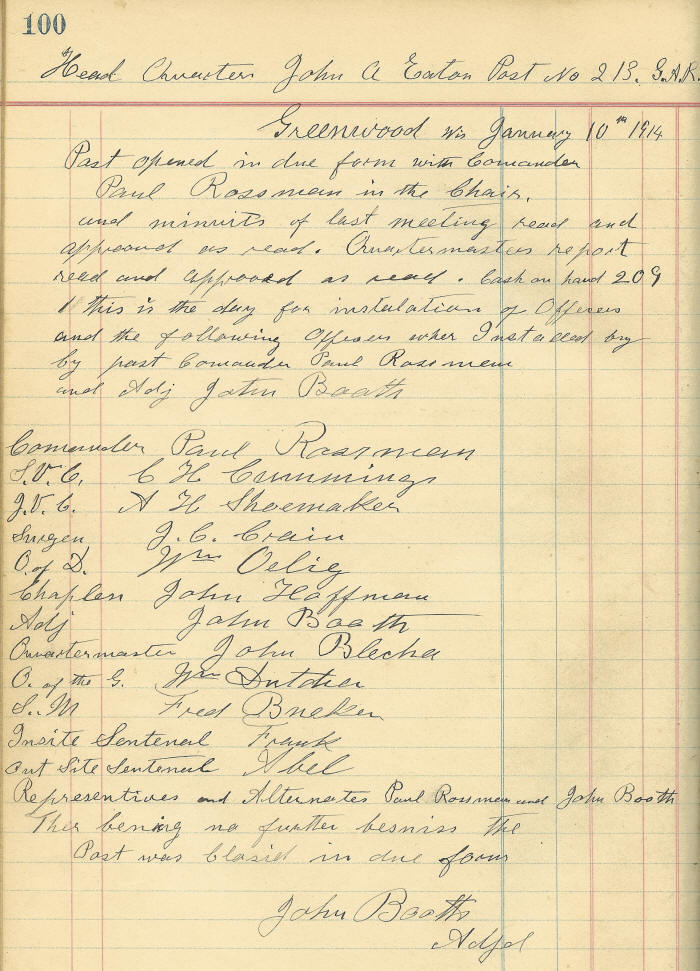 100
Head Quarters John A Eaton Post No 213. G.A.R.
Greenwood Wis January 10th 1914
Post opened in due form with Comander
Paul Rossman in the Chair.
and minuits of last meeting read and
approoved as read. Quartermasters report
read and approoed as read. Cash on hand 209
this is the day for instalation of Officers
and the following Officers wher Installed by
by past Comander Paul Rossman
and Adj John Booth
Comander Paul Rossman
S.V.C. C H Cummings
J.V.C. A H Shoemaker
Surgen J.C. Crain
O. of D. Wm Oelig
Chaplen John Hoffman
Adj John Booth
Quartermaster John Blecha
O. of the G. Wm Dutcher
S.. M Fred Bneker
Insite Sentenal Frank
out Site Sentenal Abel
Representives and Alternates Paul Rossman and John Booth
Ther bening no further besniss the
Post was Closid in due form
John Booth
Adjd